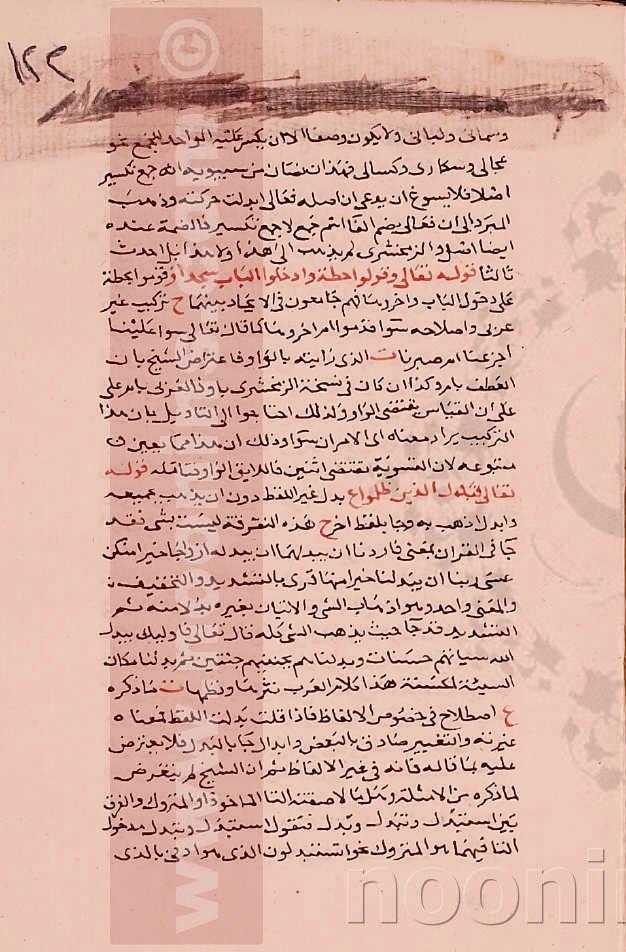 ١٢٢
وسمانى ولبانى ولا يكون وصفا الا ان يكسر عليه الواحد للجمع نحو
عجالى وسكارى وكسالى فهذان نصان من سيبويه انه جمع تكسير
اصلا فلا يسوغ ان يدعى ان اصله فعالى ابدلت حركته وذهب
المبرد الى ان فعالى بضم الفا اسم جمع لا جمع تكسير فالضمة عنده
ايضا اصل والزمخشرى لم يذهب الى هذا ولا هذا بل احدث
ثالثا قوله تعالى وقولوا حطة وادخلوا الباب سجدا و قدموا الحطة
على دخول الباب واخروها فهم جامعون فى الايجاد بينهما ح تركيب غير
عربى واصلاحه سوا قدموا ام اخروها كما قال تعالى سوا علينا
اجزعنا ام صبرنا ت الذى رايته بالواو فاعتراض الشيخ بان
العطف بام وكذا ان كان فى نسخة الزمخشرى باو فالعربى بام على
على ان القياس يقتضى الواو ولذلك احتاجوا الى التاويل بان هذا
التركيب يراد معناه اى الامران سوا وذلك ان هذا مما يعين
متبوعه لان التسوية تقتضى اثنين فاللايق الواو فتامله قوله
تعالى فبدل الذين ظلموا ع بدل غير اللفظ دون ان يذهب بجميعه
وابدل اذهب به وجا بلفظ اخر ح هذه التفرقة ليست بشى فقد
جا فى القران بمعنى فاردنا ان يبدلهما ان يبدله ازواجا خيرا منكن
عسى ربنا ان يبدلنا خيرا منها قرى بالتشديد والتخفيف
والمعنى واحد وهو اذهاب الشى والاتيان بغيره بدلا منه ثم
التشديد قد جا حيث يذهب الشى كله قال تعالى فاوليك يبدل
الله سياتهم حسنات وبدلناهم بجنتيهم جنتين ثم بدلنا مكان
السيئة الحسنة هذا كلام العرب نثرها ونظمها ت ما ذكره
ع اصطلاح فى خصوص الالفاظ فاذا قلت بدلت اللفظ فمعناه
غيرته والتغيير صادق بالبعض وابدال جا بالبدل فلا يعترض
عليه بما قاله فانه فى غير الالفاظ ثم ان الشيخ لم يتعرض
لما ذكره من الامثلة وهل بالاصقته التا الماخوذ او المتروك والفرق
بين استبدل وتبدل وبدل فنقول استبدل وتبدل مدخول
التا فيهما هو المتروك نحو اتستبدلون الذى هو ادنى بالذى
www.
noonl